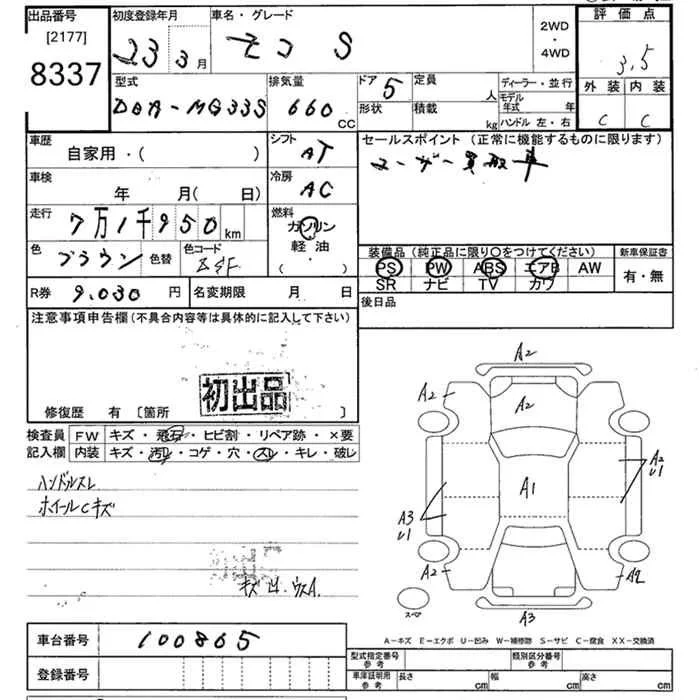 出品番号
[2177]
8337
初度登録年月
23 3月
車名・グレード
モコ S
2WD
・
4WD
評価点
3.5
外装 内装
C C
型式
DBA-MG33S
排気量
660 CC
ドア 5
形状
定員 人
積載 kg
ディーラー・並行
モデル年式 年
ハンドル 左・右
車歴
自家用・( )
シフト
AT
セールスポイント(正常に機能するものに限ります)
ユーザー買取車
車検
年 月(日)
冷房
AC
走行
7万1千950km
燃料
ガソリン
軽油・
( )
色
ブラウン
色替
色コード
装備品(純品に限り○をつけてください)
PS PW ABS エアB AW
SR ナビ TV カワ
新車保証書
有・無
R券 9,030円
名変期限 月 日
後日品
注意事項申告欄(不具合内容等は具体的に記入して下さい)
初出品
修復歴 有 [箇所 ]
検査員
記入欄
FW キズ・飛石・ヒビ割・リペア跡・×要
内装 キズ・汚れ・コゲ・穴・スレ・キレ・破レ
ハンドルスレ
ホイールCキズ
キズ 凹 ウスA.
A2
A2
A2
A2
A1
A2
U1
A3
U1
A2
A2
A3
スペア
A-キズ E-エクボ U-凹み W-補修跡 S-サビ C-腐食 XX-交換済
車台番号
100865
登録番号
型式指定番号
参考
類別区分番号
参考
車庫証明用
参考
長さ cm
幅 cm
高さ cm